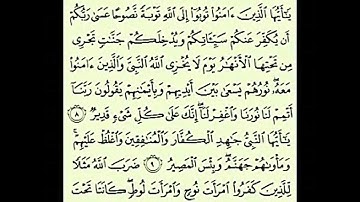 يَٰٓأَيُّهَا ٱلَّذِينَ ءَامَنُوا۟ تُوبُوٓا۟ إِلَى ٱللَّهِ تَوْبَةً نَّصُوحًا عَسَىٰ رَبُّكُمْ
أَن يُكَفِّرَ عَنكُمْ سَيِّـَٔاتِكُمْ وَيُدْخِلَكُمْ جَنَّٰتٍ تَجْرِى
مِن تَحْتِهَا ٱلْأَنْهَٰرُ يَوْمَ لَا يُخْزِى ٱللَّهُ ٱلنَّبِىَّ وَٱلَّذِينَ ءَامَنُوا۟
مَعَهُۥ نُورُهُمْ يَسْعَىٰ بَيْنَ أَيْدِيهِمْ وَبِأَيْمَٰنِهِمْ يَقُولُونَ رَبَّنَآ
أَتْمِمْ لَنَا نُورَنَا وَٱغْفِرْ لَنَآ إِنَّكَ عَلَىٰ كُلِّ شَىْءٍ قَدِيرٌ ٨
يَٰٓأَيُّهَا ٱلنَّبِىُّ جَٰهِدِ ٱلْكُفَّارَ وَٱلْمُنَٰفِقِينَ وَٱغْلُظْ عَلَيْهِمْ
وَمَأْوَىٰهُمْ جَهَنَّمُ وَبِئْسَ ٱلْمَصِيرُ ٩ ضَرَبَ ٱللَّهُ مَثَلًا
لِّلَّذِينَ كَفَرُوا۟ ٱمْرَأَتَ نُوحٍ وَٱمْرَأَتَ لُوطٍ كَانَتَا تَحْتَ